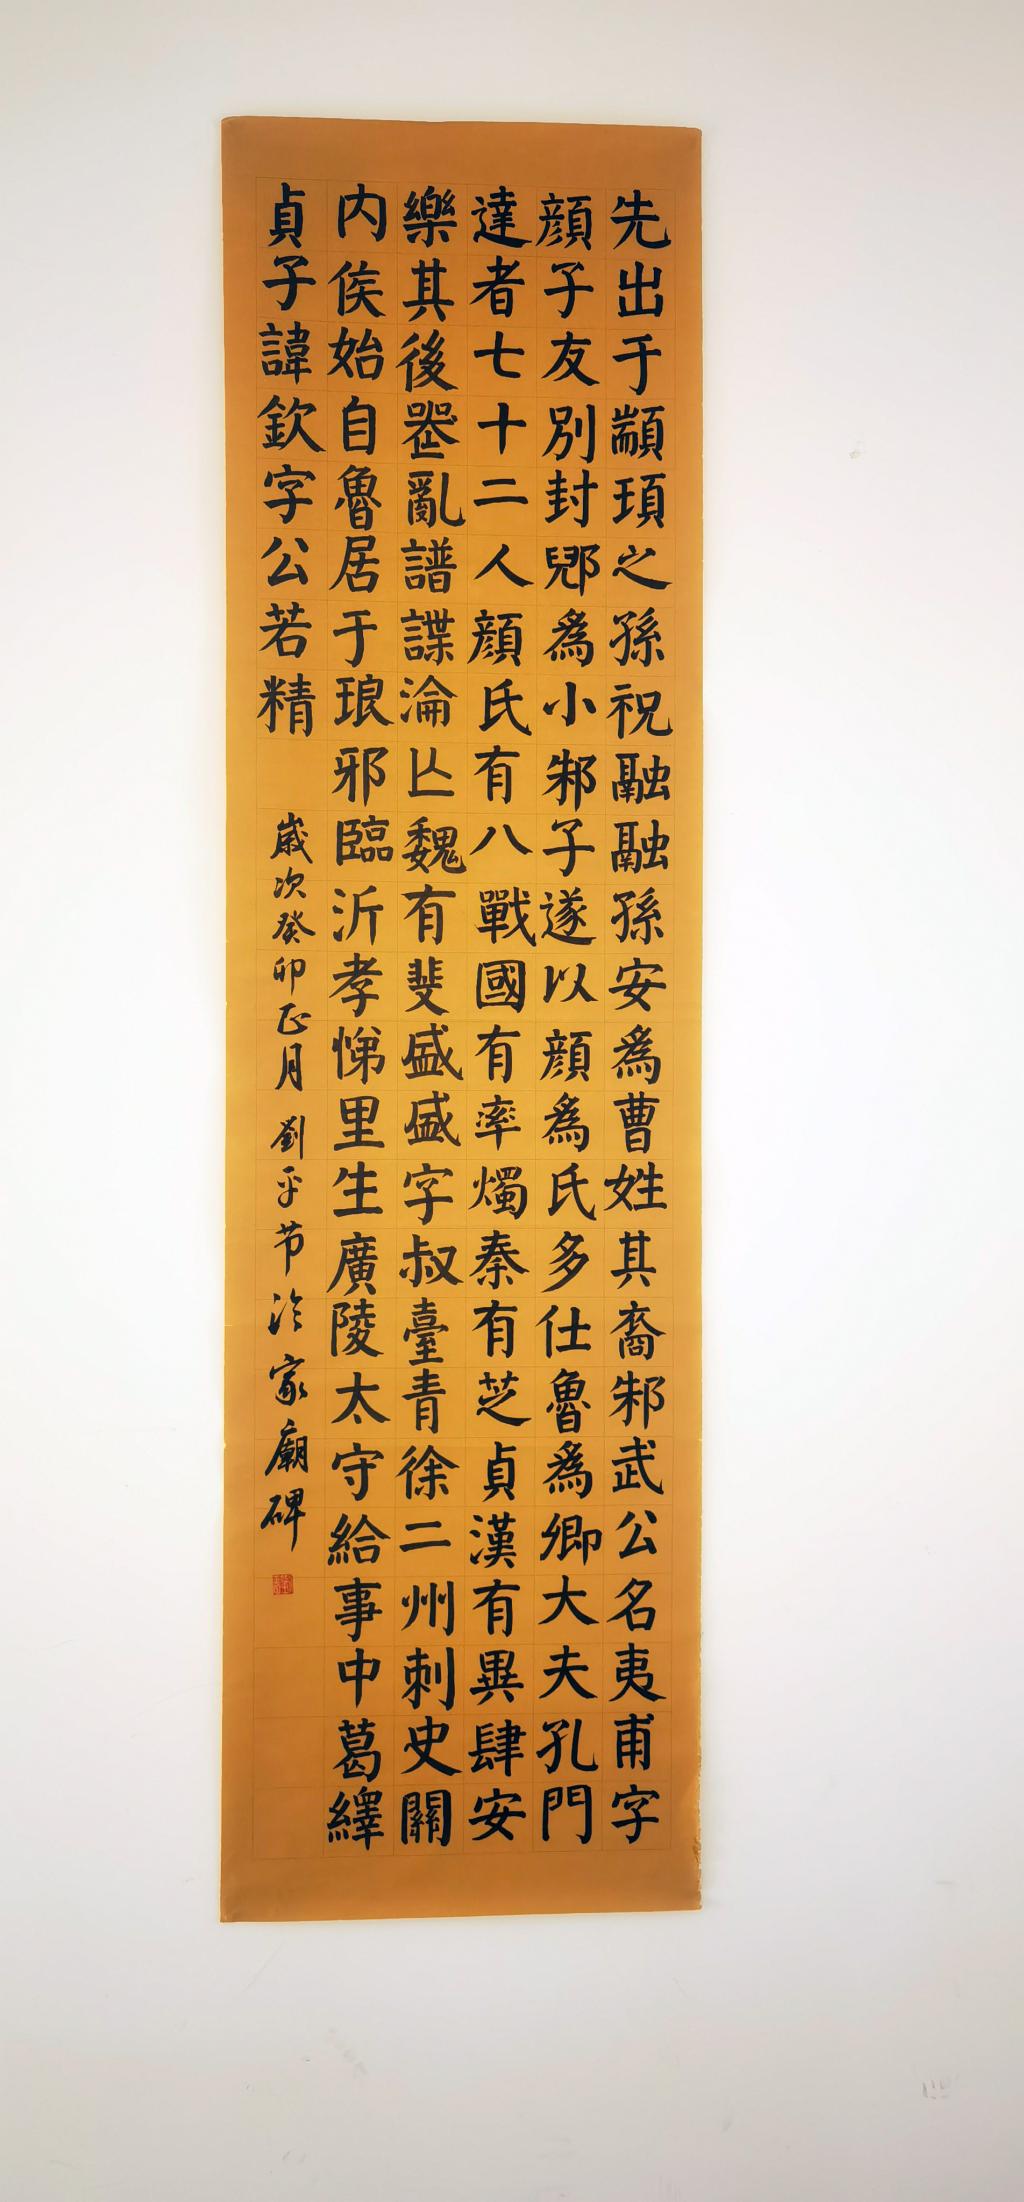 先出于顓頊之孫祝融融孫安為曹姓其裔邾武公名夷甫字
顏子友別封郳為小邾子遂以顏為氏多仕魯為卿大夫孔門
達者七十二人顏氏有八戰國有率燭秦有芝貞漢有異肆安
樂其後喪亂譜諜淪亾魏有斐盛盛字叔臺青徐二州刺史關
內侯始自魯居于琅邪臨沂孝悌里生廣陵太守給事中葛繹
貞子諱欽字公若精
歲次癸卯正月劉平节临家廟碑